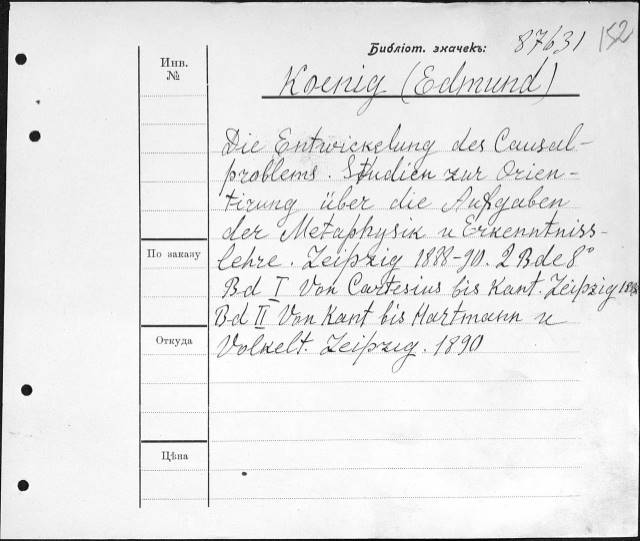 Библіот. значекъ: 87631 152
Инв.
№
Koenig (Edmund)
Die Entwickelung des Causal-
problems. Studien zur Orien-
tirung über die Aufgaben
der Metaphysik u Erkenntniss-
По заказу
lehre. Leipzig 1888-90. 2 Bde 8°
Bd I Von Cartesius bis Kant. Leipzig 1888
Bd II Von Kant bis Hartmann u
Откуда
Volkelt. Leipzig. 1890
Цѣна